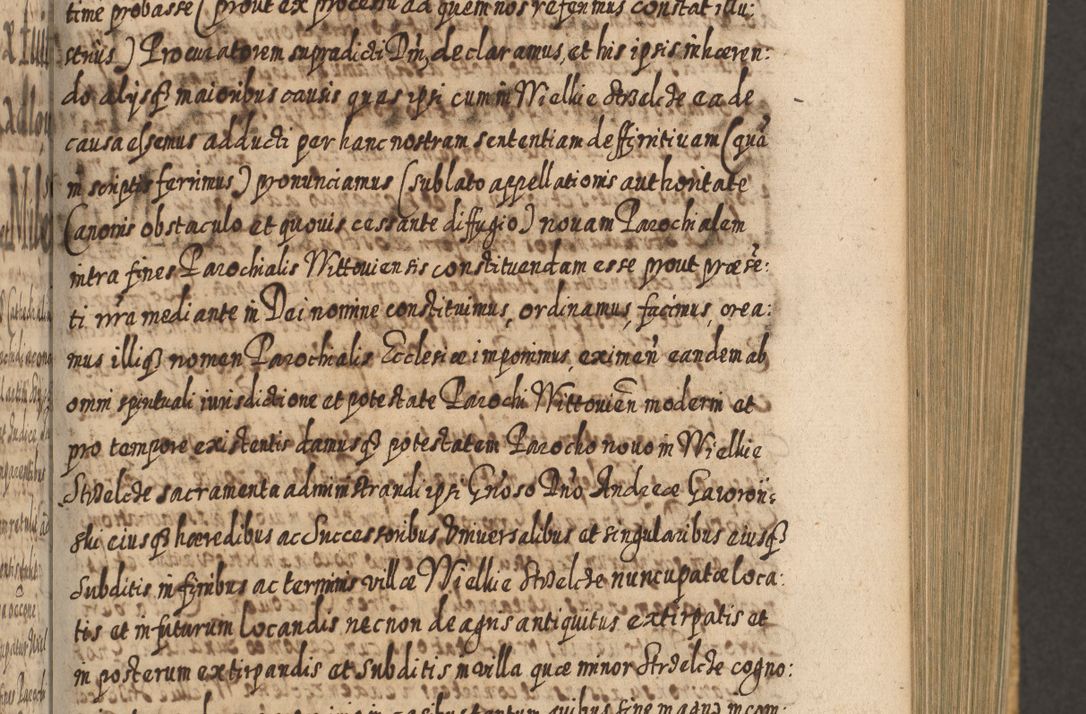 time probasse (prout ex processu ad quem nos referimus constat illu:
strius) Procuratorem supradicti Dni, declaramus, et his ipsis inhæren:
do alijsq̃ maioribus causis quas ipsi cum in Wielkie Strzelcze ea de
causa essemus adducti per hanc nostram sententiam deffinitivam (quã
in scriptis ferimus) pronunciamus (sublato appellationis authoritate
Canonis obstaculo et quovis cessante diffugio) novam Parochialem
intra fines Parochialis Wittoviensis constituendam esse prout præse:
ti nrã mediante in Dei nomine constituimus, ordinamus, facimus, crea:
mus illiq̃ nomen Parochialis Ecclesiæ imponimus, eximen̄ eandem ab
omni spirituali iurisdictione et potestate Parochi Wittovien̄ moderni et
pro tempore existentis damusq̃ potestatem Parocho novo in Wielkie
Strzelcze sacramenta administrandi ipsi Gñoso Dño Andreæ Gawroń:
ski eiusq̃ hæredibus ac Successoribus Universalibus et singularibus eiusq̃
Subditis in finibus ac terminis villæ Wielkie Strzelcze nuncupatæ loca:
tis et in futurum locandis necnon de agris antiquitus extirpatis et
in posterum extirpandis et Subditis in villa quæ minor Strzelcze cogno: